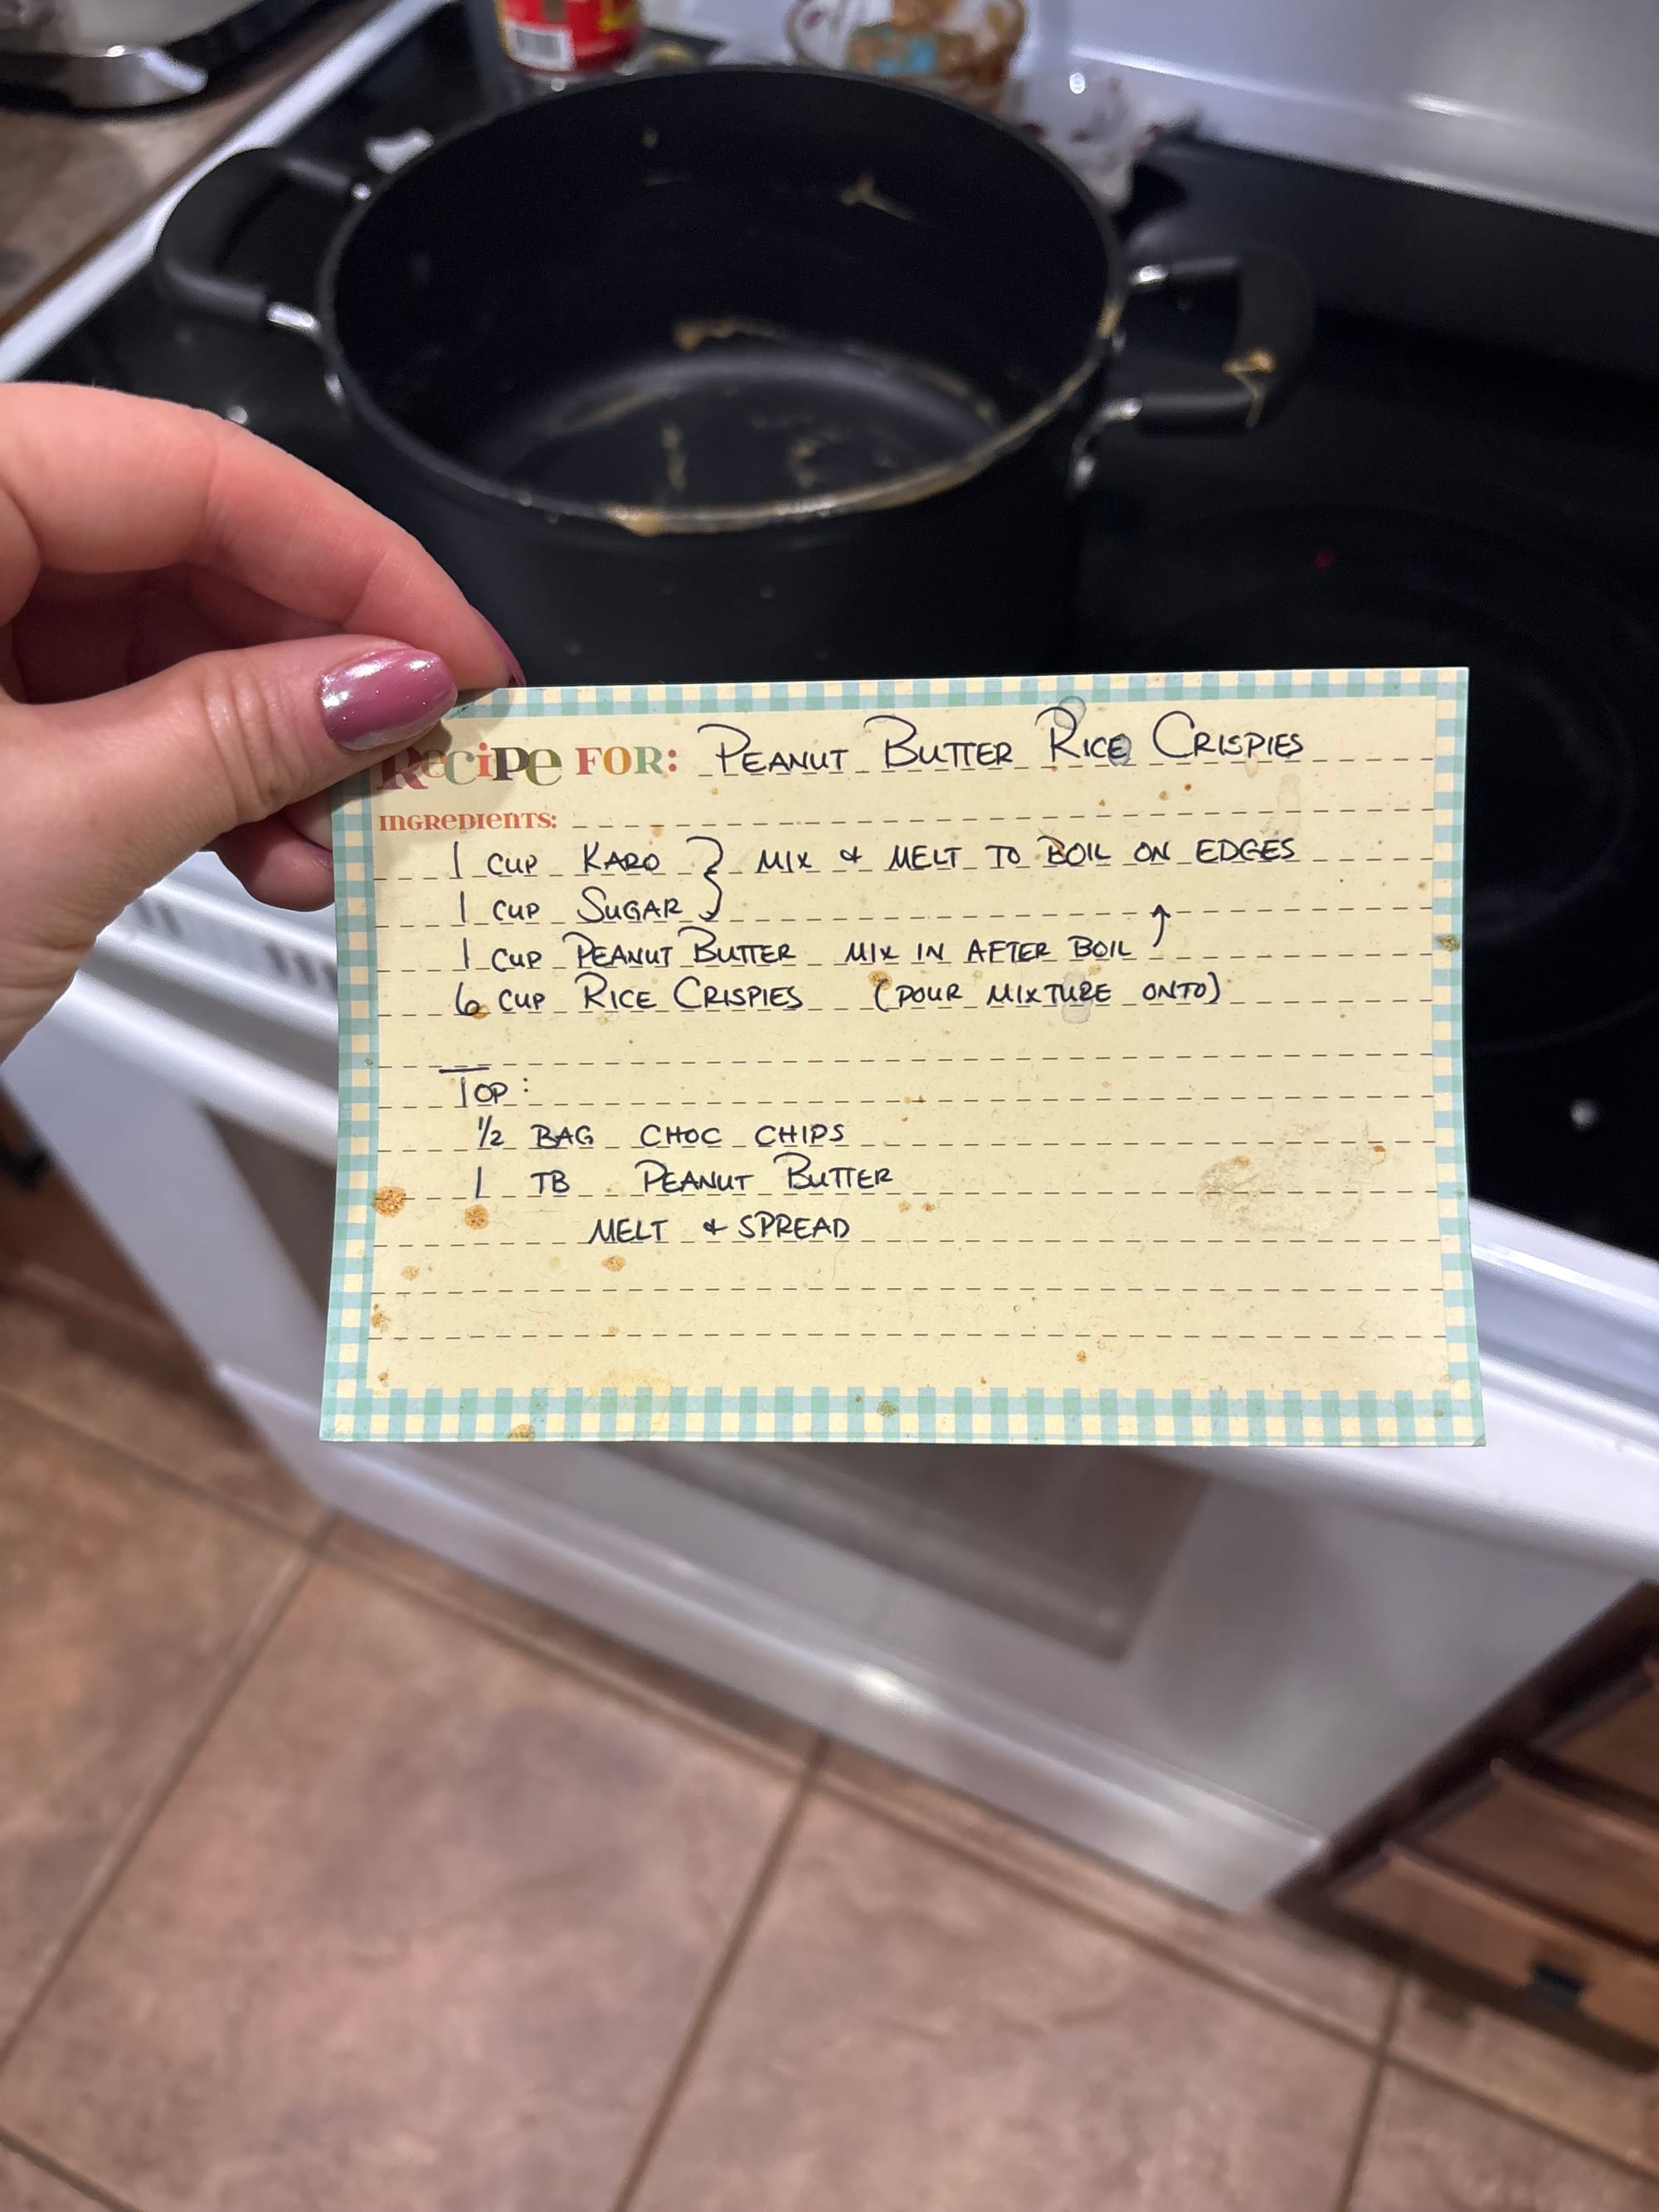 RECIPE FOR: PEANUT BUTTER RICE CRISPIES
INGREDIENTS:
1 CUP KARO } MIX & MELT TO BOIL ON EDGES
1 CUP SUGAR
1 CUP PEANUT BUTTER MIX IN AFTER BOIL ↑
6 CUP RICE CRISPIES (POUR MIXTURE ONTO)
TOP:
1/2 BAG CHOC CHIPS
1 TB PEANUT BUTTER
MELT & SPREAD